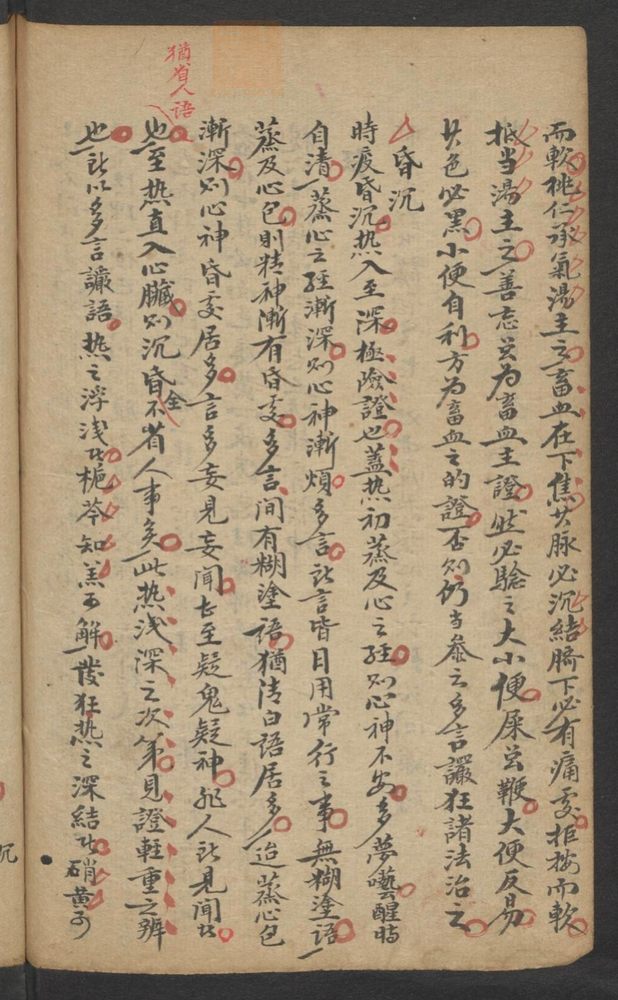 而軟桃仁承氣湯主之畜血在下焦其脉必沉結臍下必有痛處拒按而軟
抵当湯主之善忘虽为畜血主證然必驗之大小便屎虽鞕大便反易
其色必黑小便自利方为畜血之的證否则仍当叅之多言讝狂諸法治之
昏沉
時疫昏沉热入至深極險證也盖热初蒸及心之經则心神不安多夢囈醒時
自清一蒸心之經漸深则心神漸煩多言所言皆日用常行之事無糊塗語一
蒸及心包則精神漸有昏處多言间有糊塗语猶清白語居多迨蒸心包
漸深则心神昏處居多言多妄見妄闻甚至疑鬼疑神非人所見闻
猶省人语
也至热直入心臟则沉昏全不省人事矣此热浅深之次第見證軽重之辨
也所以多言讝語热之浮浅梔芩知羔可解發狂热之深結硝黄可
沉